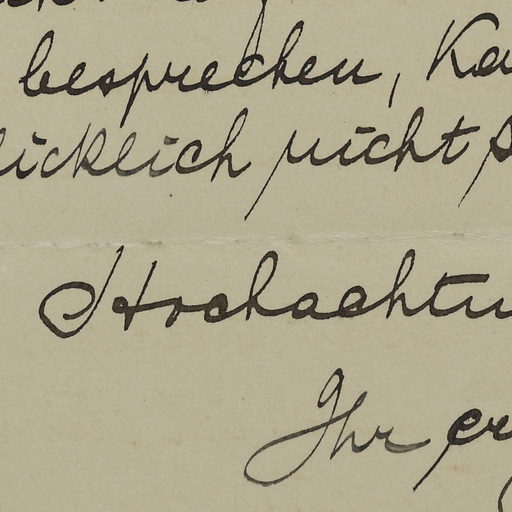 besprechen, Ka
licklich nicht s
Hochachtu
Ihr er